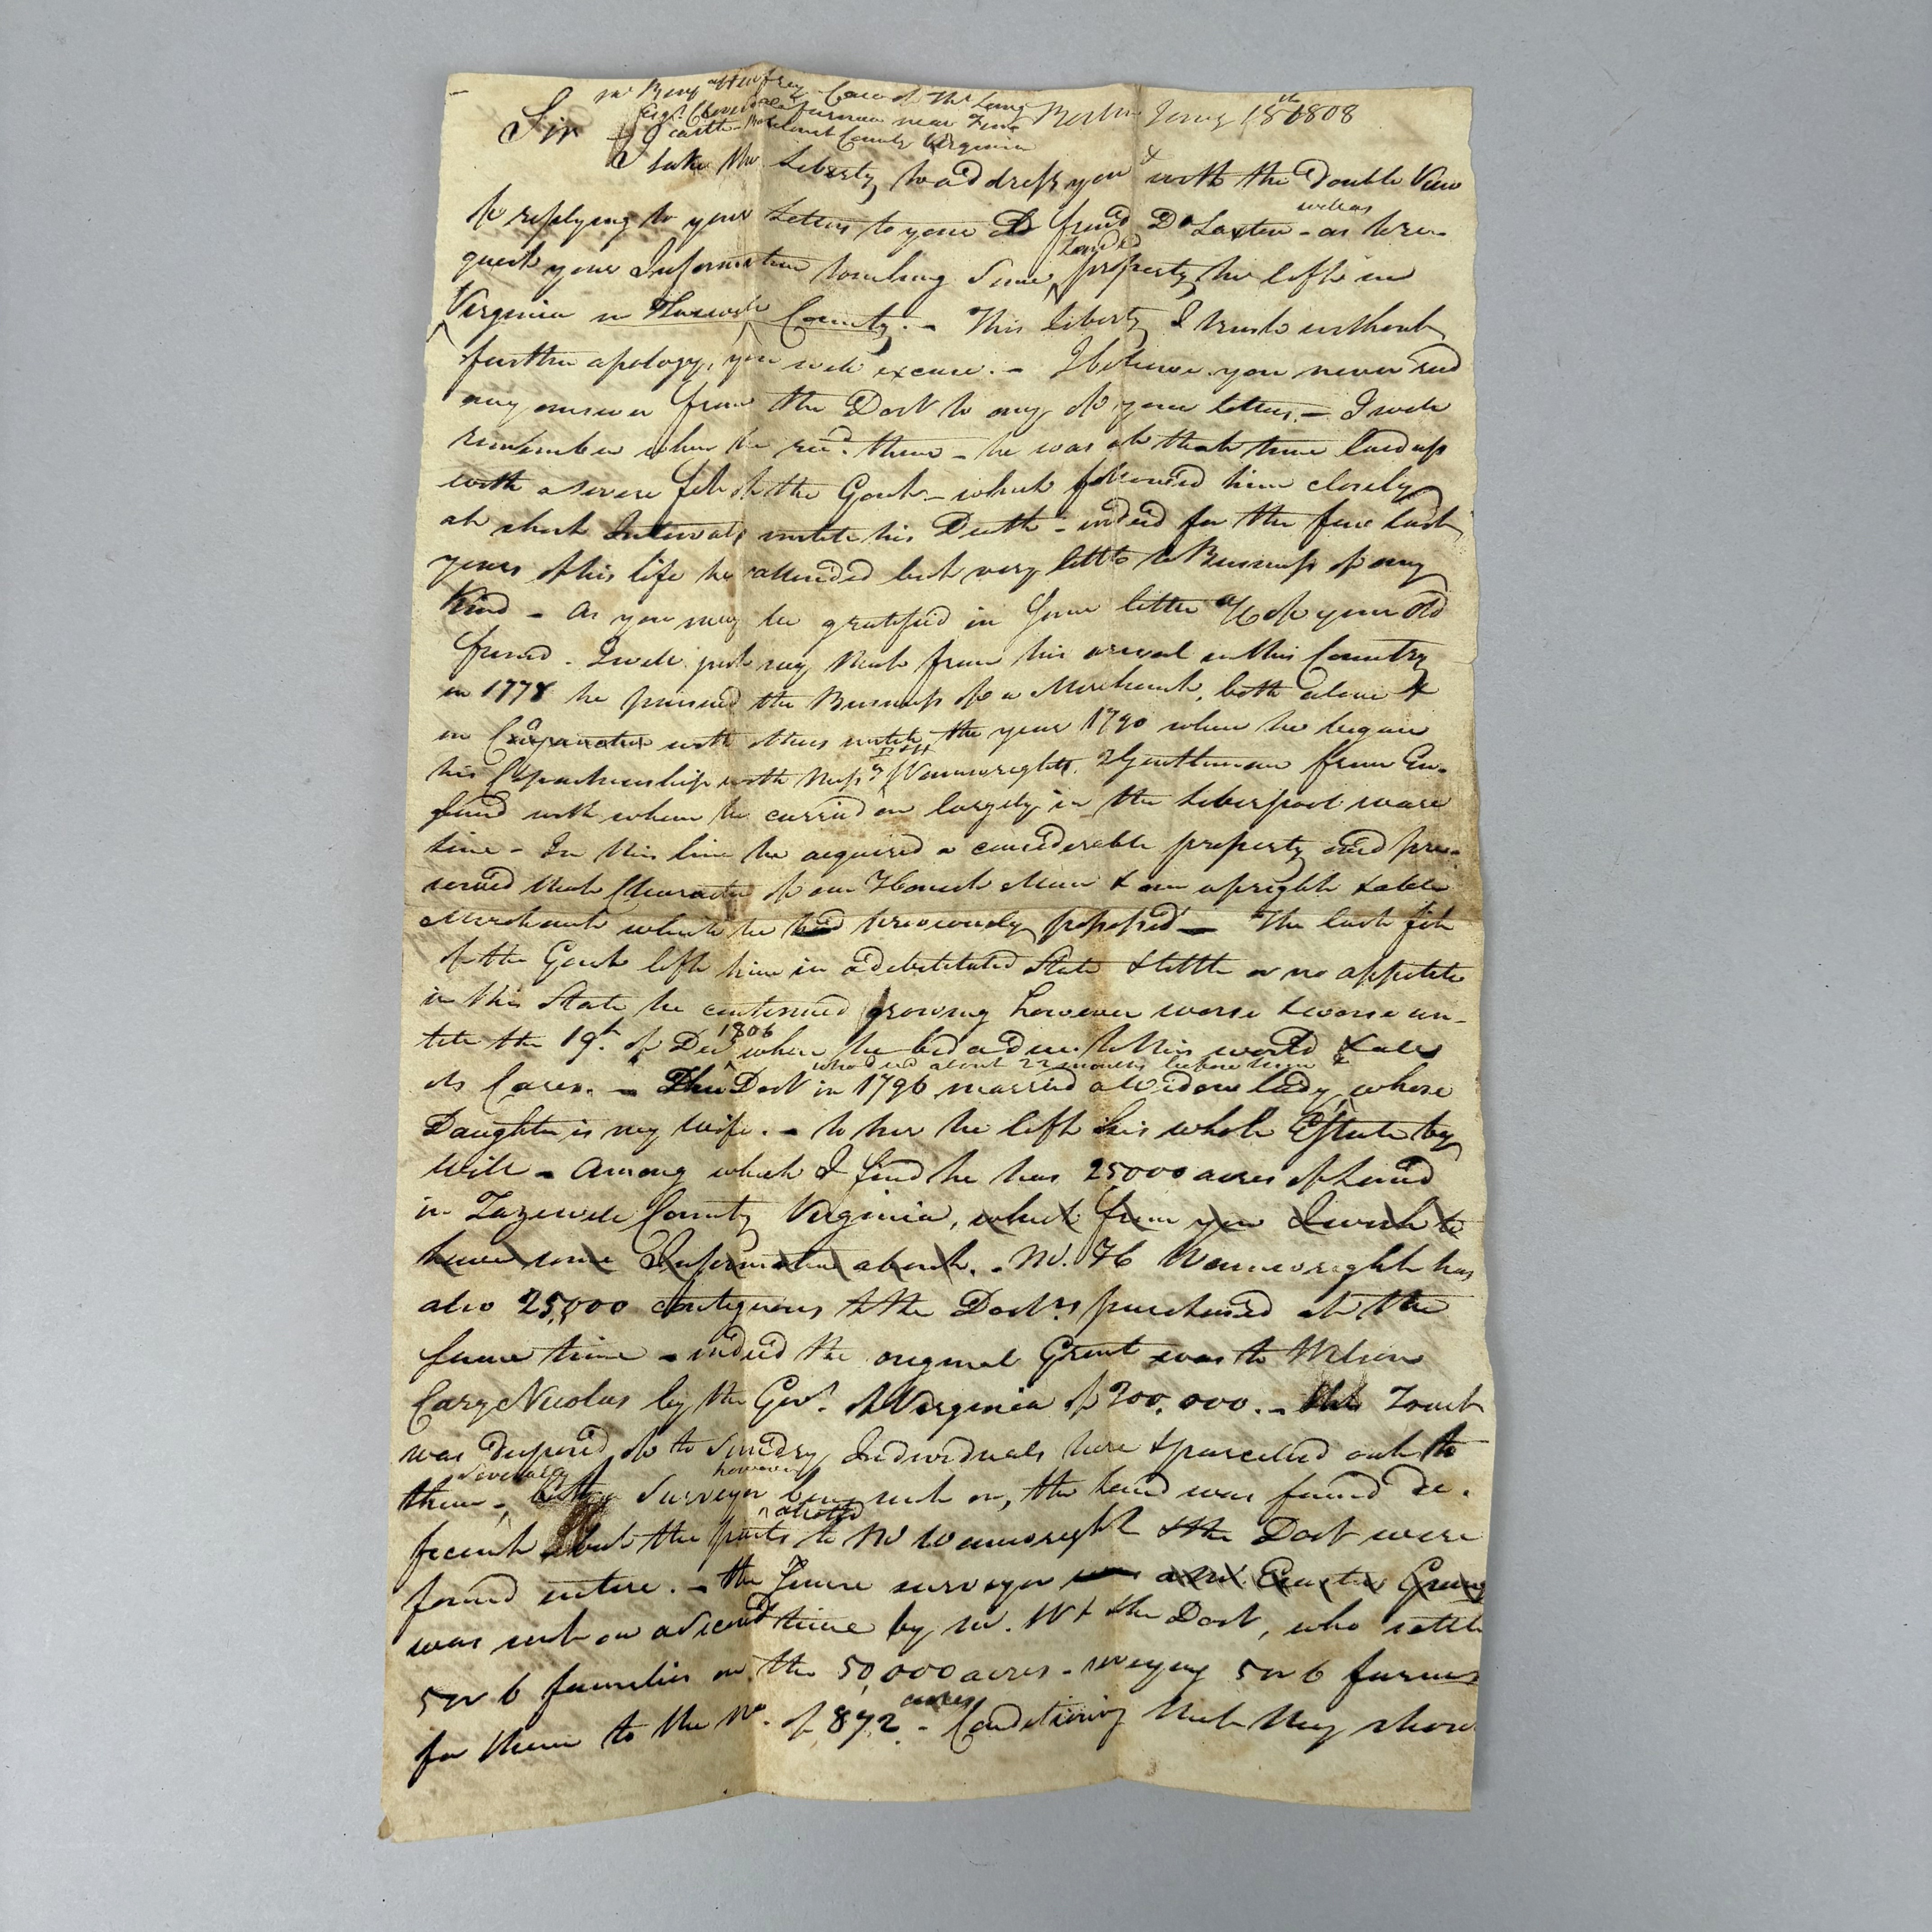 Mr Benj care of Mr Long
Cloverdale furnace near Fin
castle Botetourt County Virginia
Sir Boston Jany 18th 1808
I take the Liberty to address you & with the double View
of replying to your Letters to your old friend Dr Laxton as well as to re-
quest your Information touching Some Landed property he left in
Virginia in County. - This Liberty I trust without
further apology, you will excuse. - I believe you never recd
any answer from the Doct to any of your letters - I well
remember when he recd. them - he was at that time laid up
with a severe fit of the Gout - which followed him closely
at short Intervals untill his Death - indeed for the few last
years of his life he attended but very little to Business of any
Kind - As you may be gratified in some little a/c of your old
friend - I will just say that from his arrival in this Country
in 1778 he pursued the Business of a Merchant, both alone &
in with others untill the year 1790 when he began
his Copartnership with Mess. Wainwrights, 2 Gentlemen from En-
gland with whom he carried on largely in the Liverpool ware
line - In this line he acquired a considerable property and pre-
served that Character of an Honest Man & an upright & able
Merchant which he had previously possessed - The last fit
of the Gout left him in a debilitated State & little or no appetite
in this State he continued growing however worse & worse un-
till the 19th of Decr 1806 when he bid adieu to this world & all
its Cares. - The Doct in 1796 married a Widow lady, who died about 22 months before him & whose
Daughter is my Wife. - to her he left his whole Estate by
Will - Among which I find he has 25000 acres of Land
in Tazewell County Virginia, which from you I wish to
have some Information about. - Mr. H Wainwright has
also 25,000 contiguous to the Doctrs purchased at the
same time - indeed the original Grant was to Wilson
Cary Nicolas by the Govt. of Virginia of 300,000. - this Tract
was disposed of to Sundry Individuals here & parcelled out to
them severally, but a Surveyor however being sent on, the land was found de-
ficient but the parts allotted to Mr Wainwright & the Doct were
found entire. - the Same surveyor a Mr.
was sent on a second time by Mr. W & the Doct, who settled
5 or 6 families on the 50,000 acres - surveying 5 or 6 farms
for them to the No. of 872 acres - Conditioning that they shou